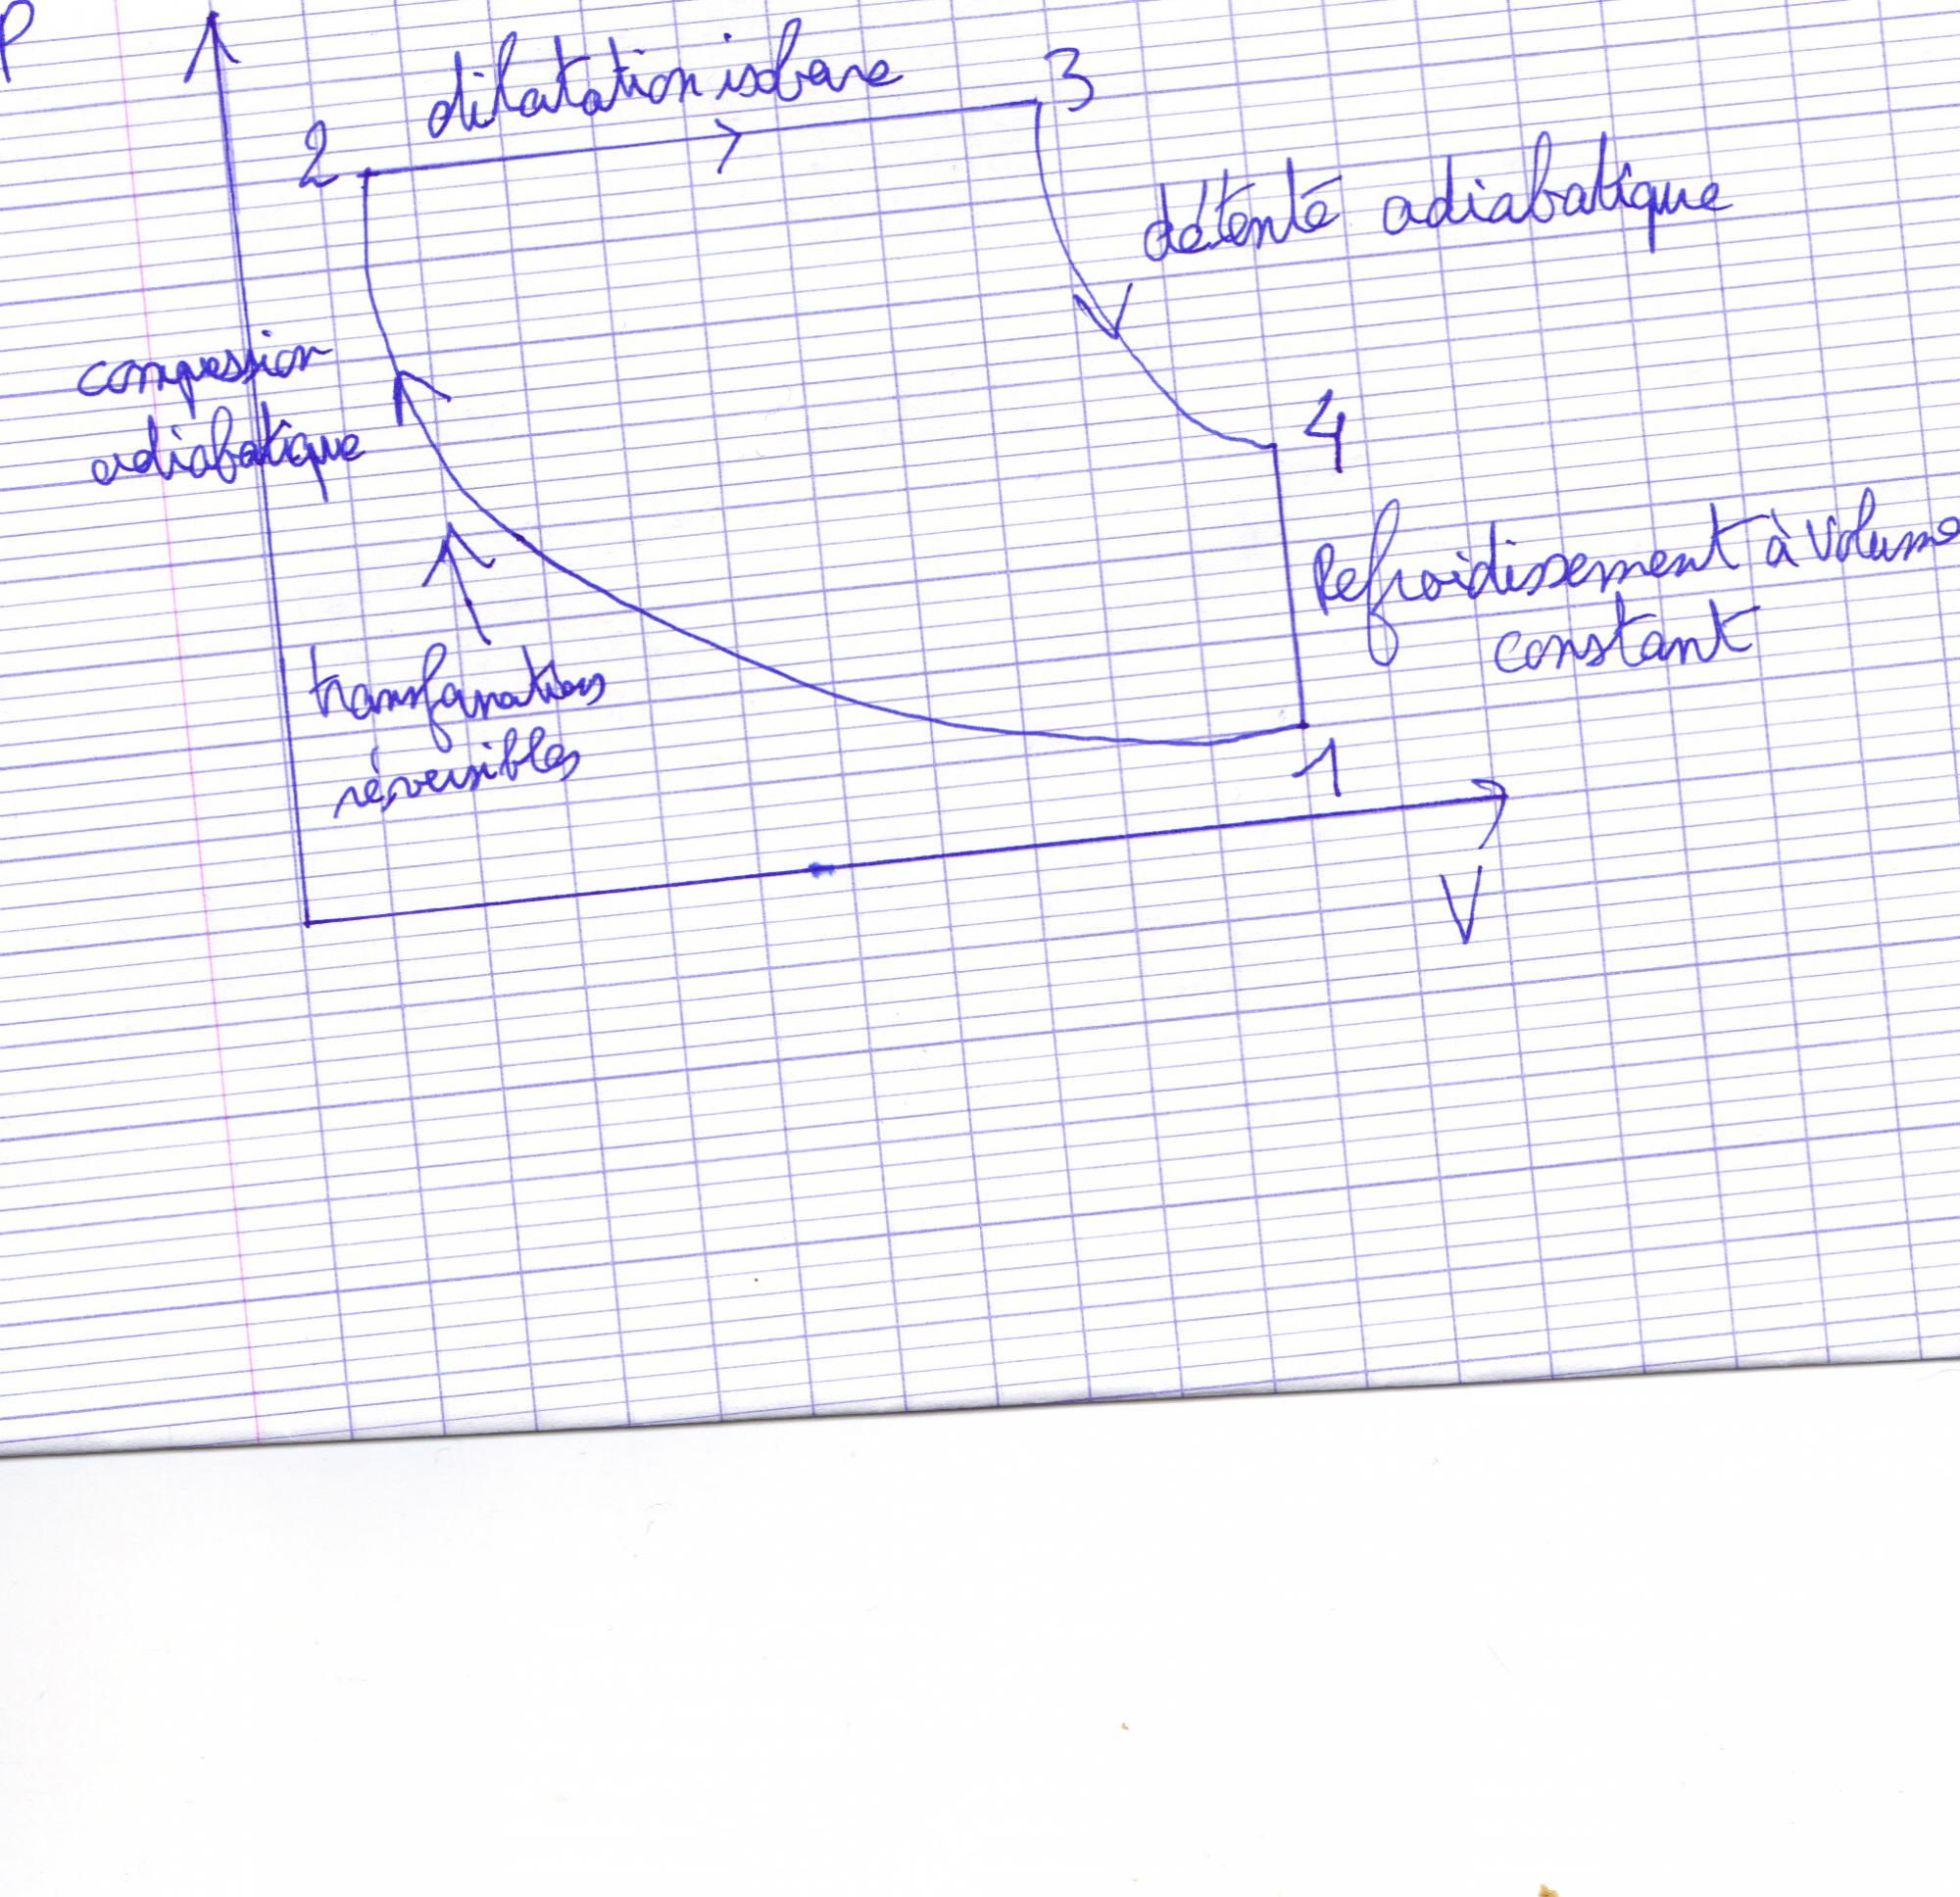 P
dilatation isobare
2
3
détente adiabatique
compression
adiabatique
4
Refroidissement à Volume
constant
transformations
réversibles
1
V